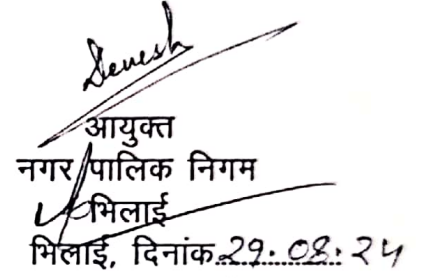 आयुक्त
नगर पालिक निगम
भिलाई
भिलाई, दिनांक 29.08.24